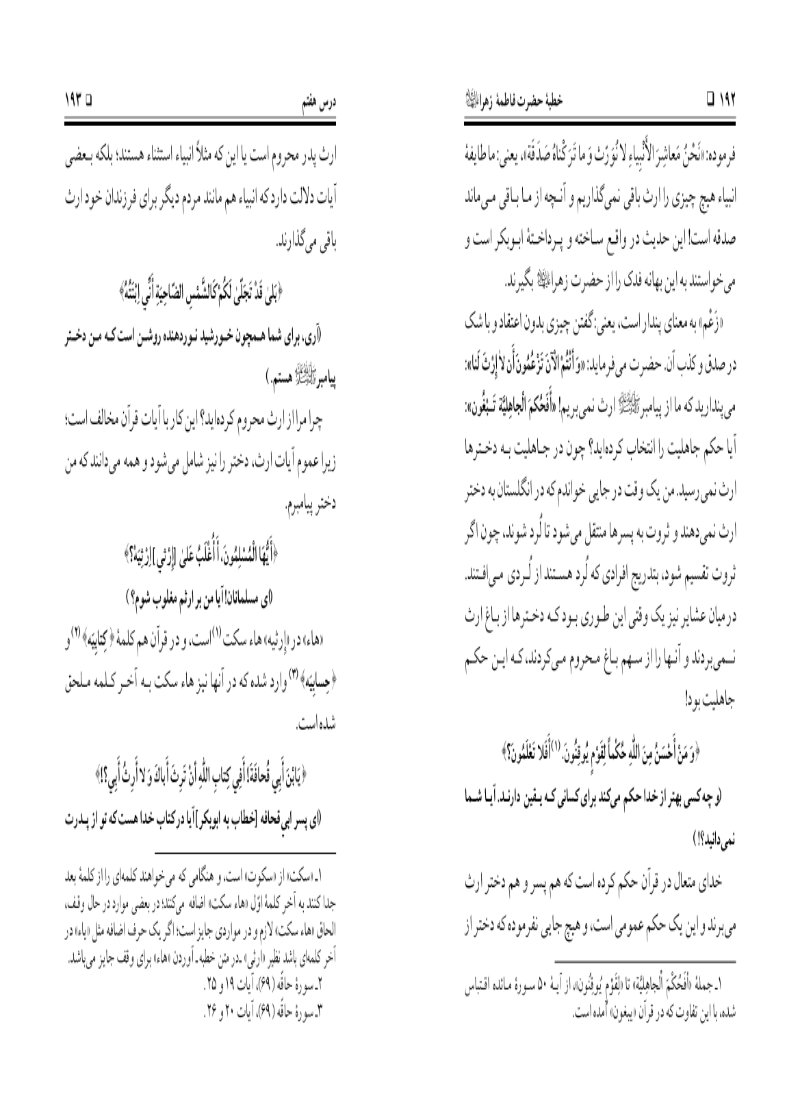 ۱۹۲ □ خطبهٔ حضرت فاطمهٔ زهرا
فرموده: «نَحْنُ مَعاشِرَ الأَنْبِیاءِ لا نُوَرِّث وَ ما تَرَکْناهُ صَدَقَة»، یعنی: ما طایفهٔ
انبیاء هیچ چیزی را ارث باقی نمی‌گذاریم و آنچه از ما باقی می‌ماند
صدقه است! این حدیث در واقع ساخته و پرداختهٔ ابوبکر است و
می‌خواستند به این بهانه فدک را از حضرت زهرا بگیرند.
«زَعْم» به معنای پندار است، یعنی: گفتن چیزی بدون اعتقاد و با شک
در صدق و کذب آن. حضرت می‌فرماید: «وَ أَنْتُمُ الْآنَ تَزْعُمُونَ أَن لا إِرْثَ لَنا»:
می‌پندارید که ما از پیامبر ارث نمی‌بریم! «أَفَحُکْمَ الْجاهِلِیَّة تَبْغُون»:
آیا حکم جاهلیت را انتخاب کرده‌اید؟ چون در جاهلیت به دخترها
ارث نمی‌رسید. من یک وقت در جایی خواندم که در انگلستان به دختر
ارث نمی‌دهند و ثروت به پسرها منتقل می‌شود تا لُرد شوند، چون اگر
ثروت تقسیم شود، بتدریج افرادی که لُرد هستند از لُردی می‌افتند.
در میان عشایر نیز یک وقتی این طوری بود که دخترها از باغ ارث
نمی‌بردند و آنها را از سهم باغ محروم می‌کردند، که این حکم
جاهلیت بود!
﴿وَ مَنْ أَحْسَنُ مِنَ اللهِ حُکْماً لِقَوْمٍ یُوقِنُونَ. (۱) أَفَلا تَعْلَمُونَ؟﴾
(و چه کسی بهتر از خدا حکم می‌کند برای کسانی که یقین دارند. آیا شما
نمی‌دانید؟!)
خدای متعال در قرآن حکم کرده است که هم پسر و هم دختر ارث
می‌برند و این یک حکم عمومی است، و هیچ جایی نفرموده که دختر از
۱ـ جملهٔ «أَفَحُکْمَ الْجاهِلِیَّة» تا «لِقَوْمٍ یُوقِنُون»، از آیهٔ ۵۰ سورهٔ مائده اقتباس
شده، با این تفاوت که در قرآن «یبغون» آمده است.
درس هفتم □ ۱۹۳
ارث پدر محروم است یا این که مثلاً انبیاء استثناء هستند؛ بلکه بعضی
آیات دلالت دارد که انبیاء هم مانند مردم دیگر برای فرزندان خود ارث
باقی می‌گذارند.
﴿بَلیٰ قَدْ تَجَلّیٰ لَکُمْ کَالشَّمْسِ الضّاحِیَةِ أَنّی إِبْنَتُهُ﴾
(آری، برای شما همچون خورشید نوردهنده روشن است که من دختر
پیامبر هستم.)
چرا مرا از ارث محروم کرده‌اید؟ این کار با آیات قرآن مخالف است؛
زیرا عموم آیات ارث، دختر را نیز شامل می‌شود و همه می‌دانند که من
دختر پیامبرم.
﴿أَیُّهَا الْمُسْلِمُونَ، أَأُغْلَبُ عَلیٰ [إرْثي] إِرْثِیَهْ؟﴾
(ای مسلمانان! آیا من بر ارثم مغلوب شوم؟)
«هاء» در «إرثیه» هاء سکت (۱) است، و در قرآن هم کلمهٔ ﴿کِتابِیَه﴾ (۲) و
﴿حِسابِیَه﴾ (۳) وارد شده که در آنها نیز هاء سکت به آخر کلمه ملحق
شده است.
﴿یَابْنَ أَبي قُحافَةَ! أَفِي کِتابِ اللهِ أَنْ تَرِثَ أَباكَ وَ لا أَرِثُ أَبي؟!﴾
(ای پسر ابی‌قحافه [خطاب به ابوبکر] آیا در کتاب خدا هست که تو از پدرت
۱ـ «سکت» از «سکوت» است، و هنگامی که می‌خواهند کلمه‌ای را از کلمهٔ بعد
جدا کنند به آخر کلمهٔ اوّل «هاء سکت» اضافه می‌کنند؛ در بعضی موارد در حال وقف،
الحاق «هاء سکت» لازم و در مواردی جایز است؛ اگر یک حرف اضافه مثل «یاء» در
آخر کلمه‌ای باشد نظیر «ارثی» ـ در متن خطبه ـ آوردن «هاء» برای وقف جایز می‌باشد.
۲ـ سورهٔ حاقّه (۶۹)، آیات ۱۹ و ۲۵.
۳ـ سورهٔ حاقّه (۶۹)، آیات ۲۰ و ۲۶.